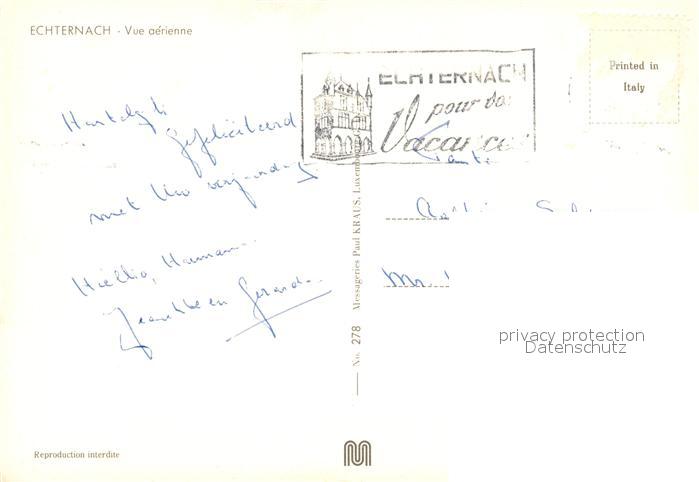 ECHTERNACH - Vue aérienne
ECHTERNACH
pour vos
Vacances
Printed in
Italy
Hartelijk
gefeliciteerd
met Uw verjaardag
Gerarda
No. 278 Messageries Paul KRAUS, Luxem
privacy protection
Datenschutz
Reproduction interdite